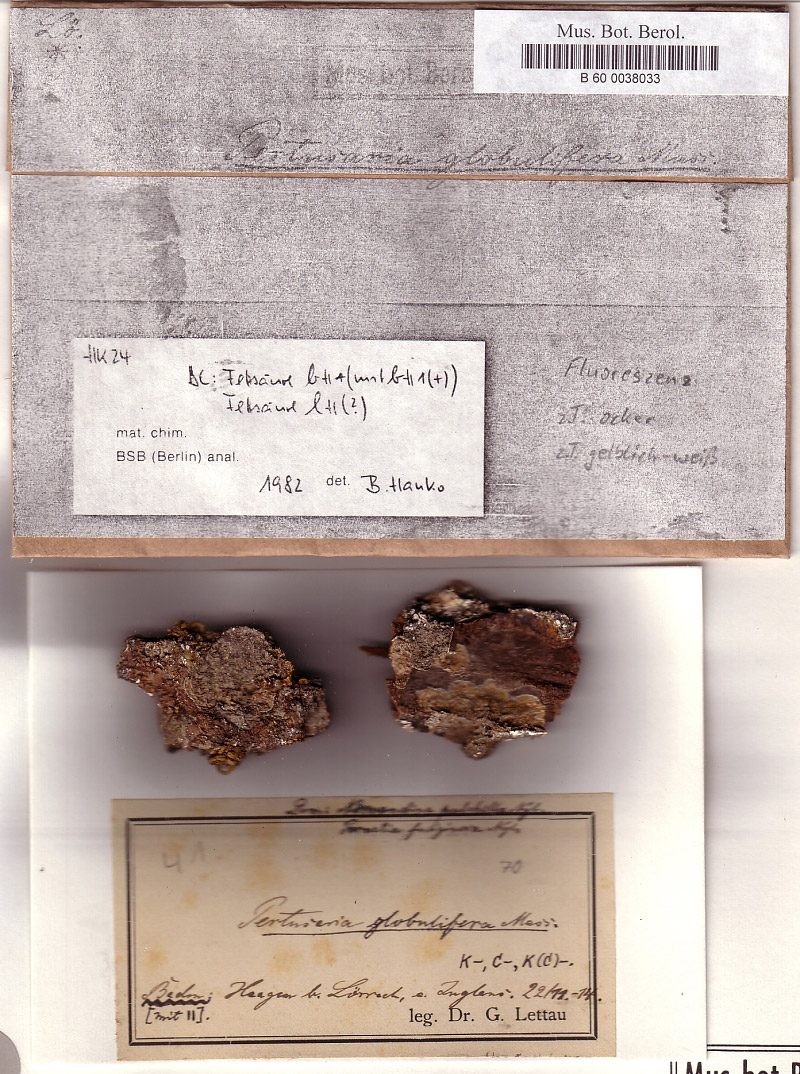 Lö.
*
Mus. Bot. Berol.
B 60 0038033
Mus. bot. Berol
Pertusaria globulifera Mass.
HK 24
DC: Fettsäure bH+(mit bH1(+))
Fettsäure lH(?)
mat. chim.
BSB (Berlin) anal.
1982 det. B. Hanko
Fluoreszenz
z.T. ocker
z.T. gelblich-weiß
Nyl.
Nyl.
41
70
Pertusaria globulifera Mass.
K-, C-, K(C)-.
Baden: Haagen b. Lörrach, a. Juglans. 22/11.-14.
[mit 11].
leg. Dr. G. Lettau
Mus. bot. B